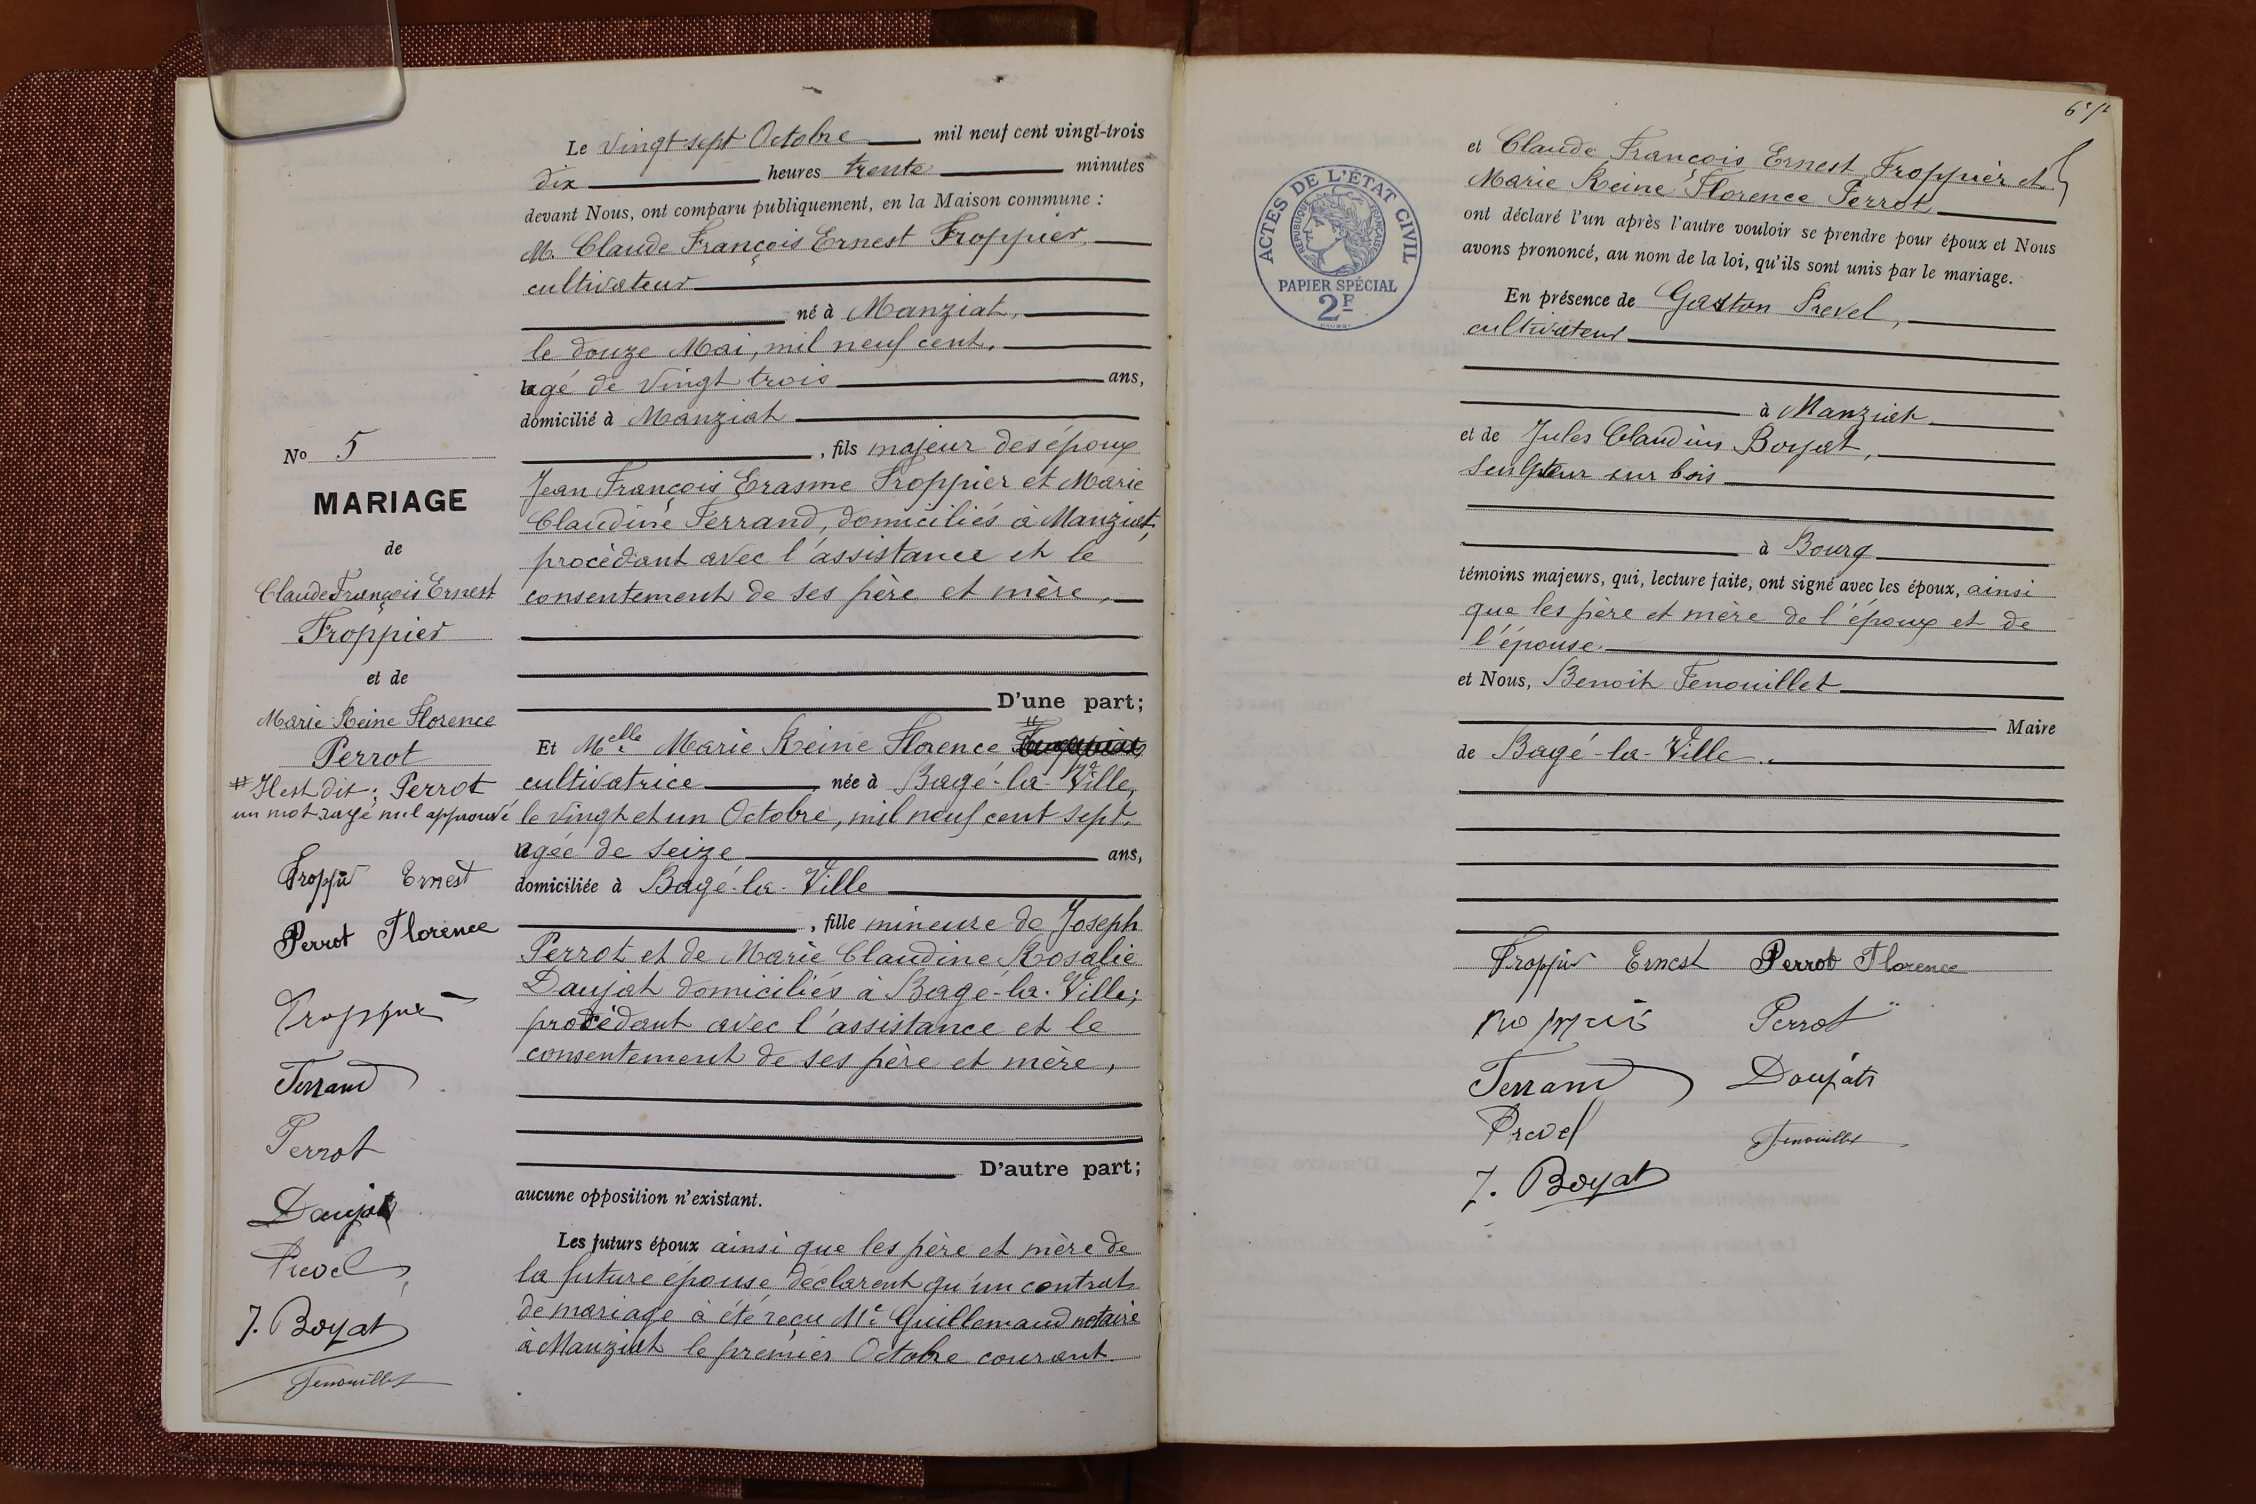 Le vingt sept Octobre mil neuf cent vingt-trois
dix heures trente minutes
devant Nous, ont comparu publiquement, en la Maison commune :
M. Claude François Ernest Froppier,
cultivateur
né à Manziat,
le douze Mai, mil neuf cent,
agé de vingt trois ans,
domicilié à Manziat
, fils majeur des époux
Jean François Erasme Froppier et Marie
Claudine Ferrand, domiciliés à Manziat,
procédant avec l'assistance et le
consentement de ses père et mère,
D'une part;
Et Melle Marie Reine Florence #
cultivatrice née à Bagé-la-Ville,
le vingt et un Octobre, mil neuf cent sept,
agée de seize ans,
domiciliée à Bagé-la-Ville
, fille mineure de Joseph
Perrot et de Marie Claudine Rosalie
Daujat domiciliés à Bagé-la-Ville;
procédant avec l'assistance et le
consentement de ses père et mère,
D'autre part;
aucune opposition n'existant.
Les futurs époux ainsi que les père et mère de
la future épouse déclarent qu'un contrat
de mariage à été reçu Me Guillemaud notaire
à Manziat le premier Octobre courant
No 5
MARIAGE
de
Claude François Ernest
Froppier
et de
Marie Reine Florence
Perrot
# Il est dit : Perrot
un mot rayé nul approuvé
Froppier Ernest
Perrot Florence
Froppier
Ferrand
Perrot
Daujat
Prevel
J. Boyat
Fenouillet
ACTES DE L'ETAT CIVIL
REPUBLIQUE FRANÇAISE
PAPIER SPÉCIAL
2F
et Claude François Ernest Froppier et
Marie Reine Florence Perrot
ont déclaré l'un après l'autre vouloir se prendre pour époux et Nous
avons prononcé, au nom de la loi, qu'ils sont unis par le mariage.
En présence de Gaston Prevel,
cultivateur
à Manziat
et de Jules Claudius Boyat,
sculpteur sur bois
à Bourg
témoins majeurs, qui, lecture faite, ont signé avec les époux, ainsi
que les père et mère de l'époux et de
l'épouse.
et Nous, Benoit Fenouillet
Maire
de Bagé-la-Ville.
Froppier Ernest Perrot Florence
Perrot
Ferrand Daujat
Prevel Fenouillet
J. Boyat